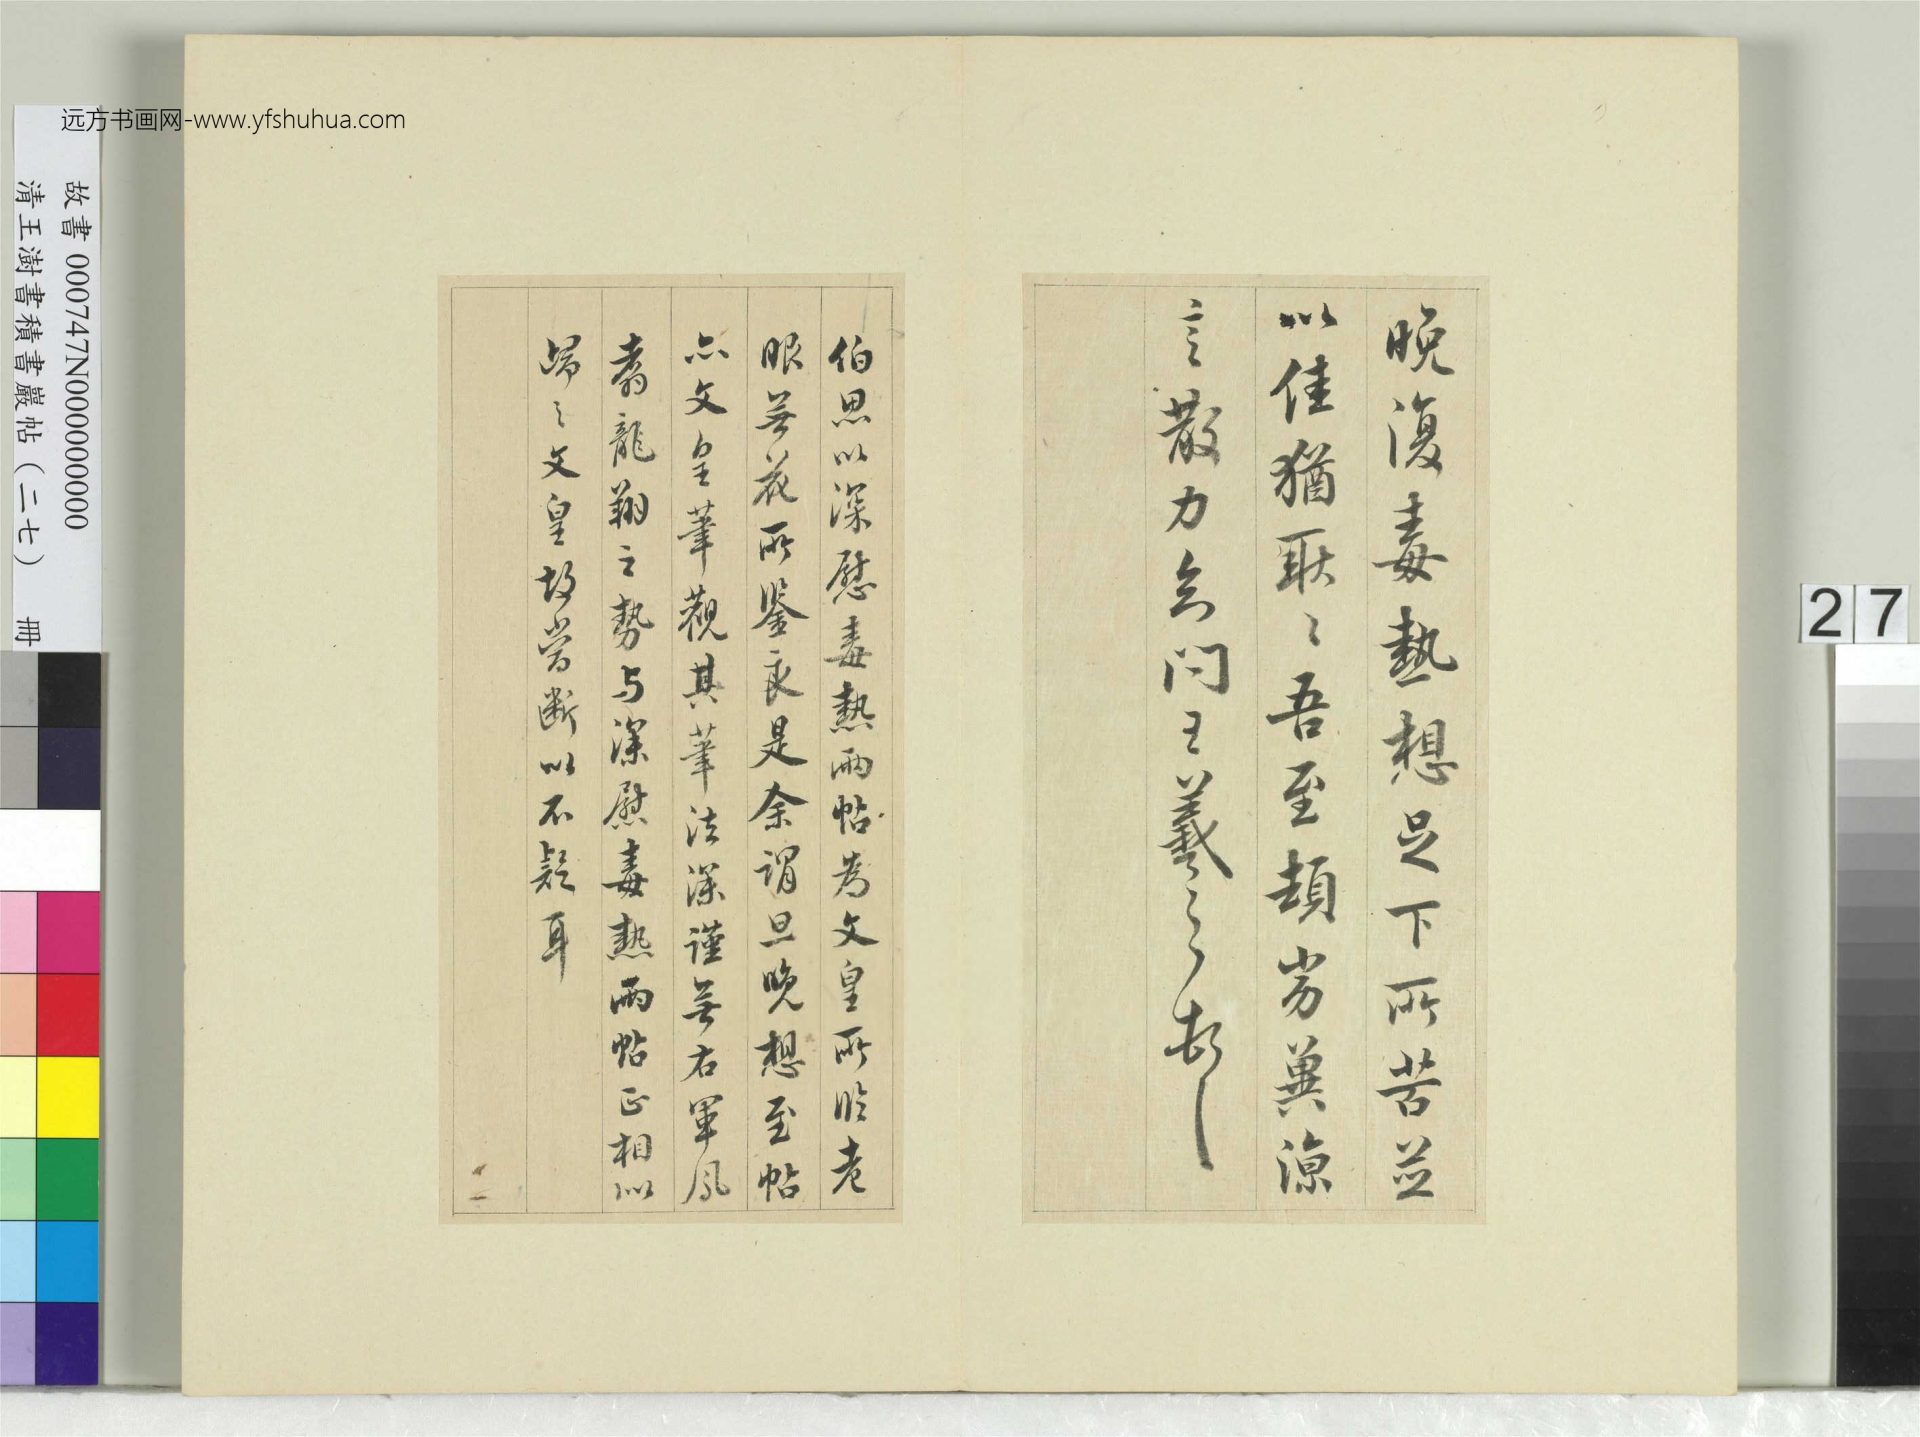 远方书画网-www.yfshuhua.com
故書 000747N000000000
清王澍書積書巖帖(二七) 冊
27
晚復毒熱想足下所苦並
以佳猶耿〻吾至頓劣冀涼
言散力知問王羲之報
伯思以深慰毒熱兩帖為文皇所臨老
眼無花所鑒良是余謂旦晚想至帖
亦文皇筆觀其筆法深謹無右軍鳳
翥龍翔之勢与深慰毒熱兩帖正相似
歸之文皇故當斷以不疑耳